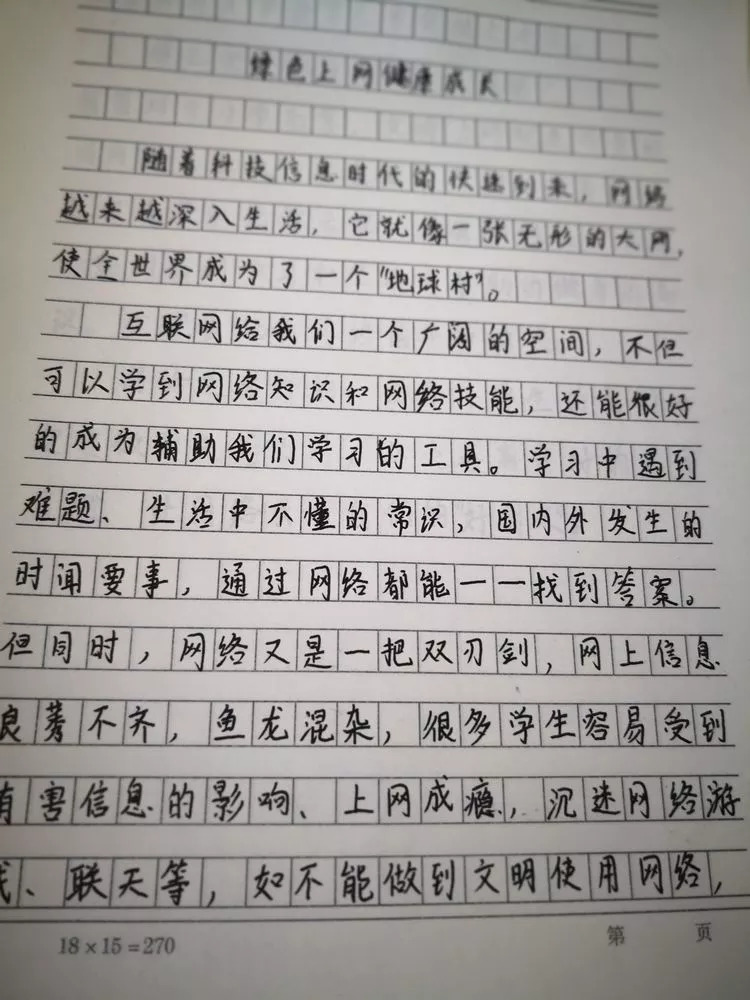 绿色上网健康成长
随着科技信息时代的快速到来，网络
越来越深入生活，它就像一张无形的大网，
使全世界成为了一个"地球村"。
互联网给我们一个广阔的空间，不但
可以学到网络知识和网络技能，还能很好
的成为辅助我们学习的工具。学习中遇到
难题、生活中不懂的常识，国内外发生的
时闻要事，通过网络都能一一找到答案。
但同时，网络又是一把双刃剑，网上信息
良莠不齐，鱼龙混杂，很多学生容易受到
有害信息的影响、上网成瘾，沉迷网络游
戏、联天等，如不能做到文明使用网络，
18×15=270
第 页